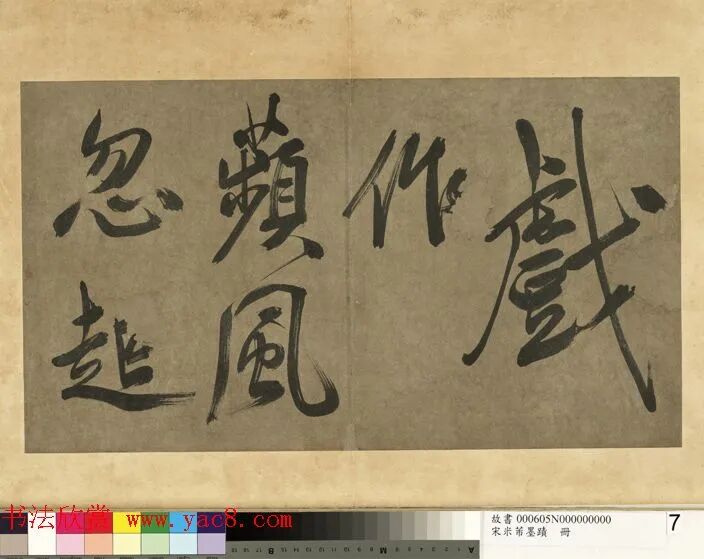 戲
作
蘋風
忽起
书法欣赏 www.yac8.com
故書 000605N000000000
宋米芾墨蹟 冊
7